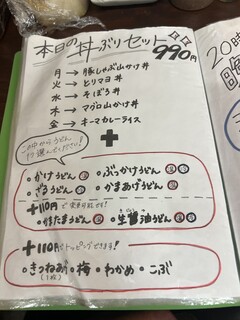 本日の丼ぶりセット
990円
月→豚しゃぶ山かけ丼
火→とりマヨ丼
水→そぼろ丼
木→マグロ山かけ丼
金→キーマカレーライス
＋
この中からうどん
お選びください!
・かけうどん 温冷 ・ぶっかけうどん 温冷
・ざるうどん 冷 ・かまあげうどん 温
＋110円で変更可能です!
・釜たまうどん 温 ・生醤油うどん 温冷
＋110円でトッピングできます!
・きつねあげ ・梅 ・わかめ ・こぶ
(1枚)
20時